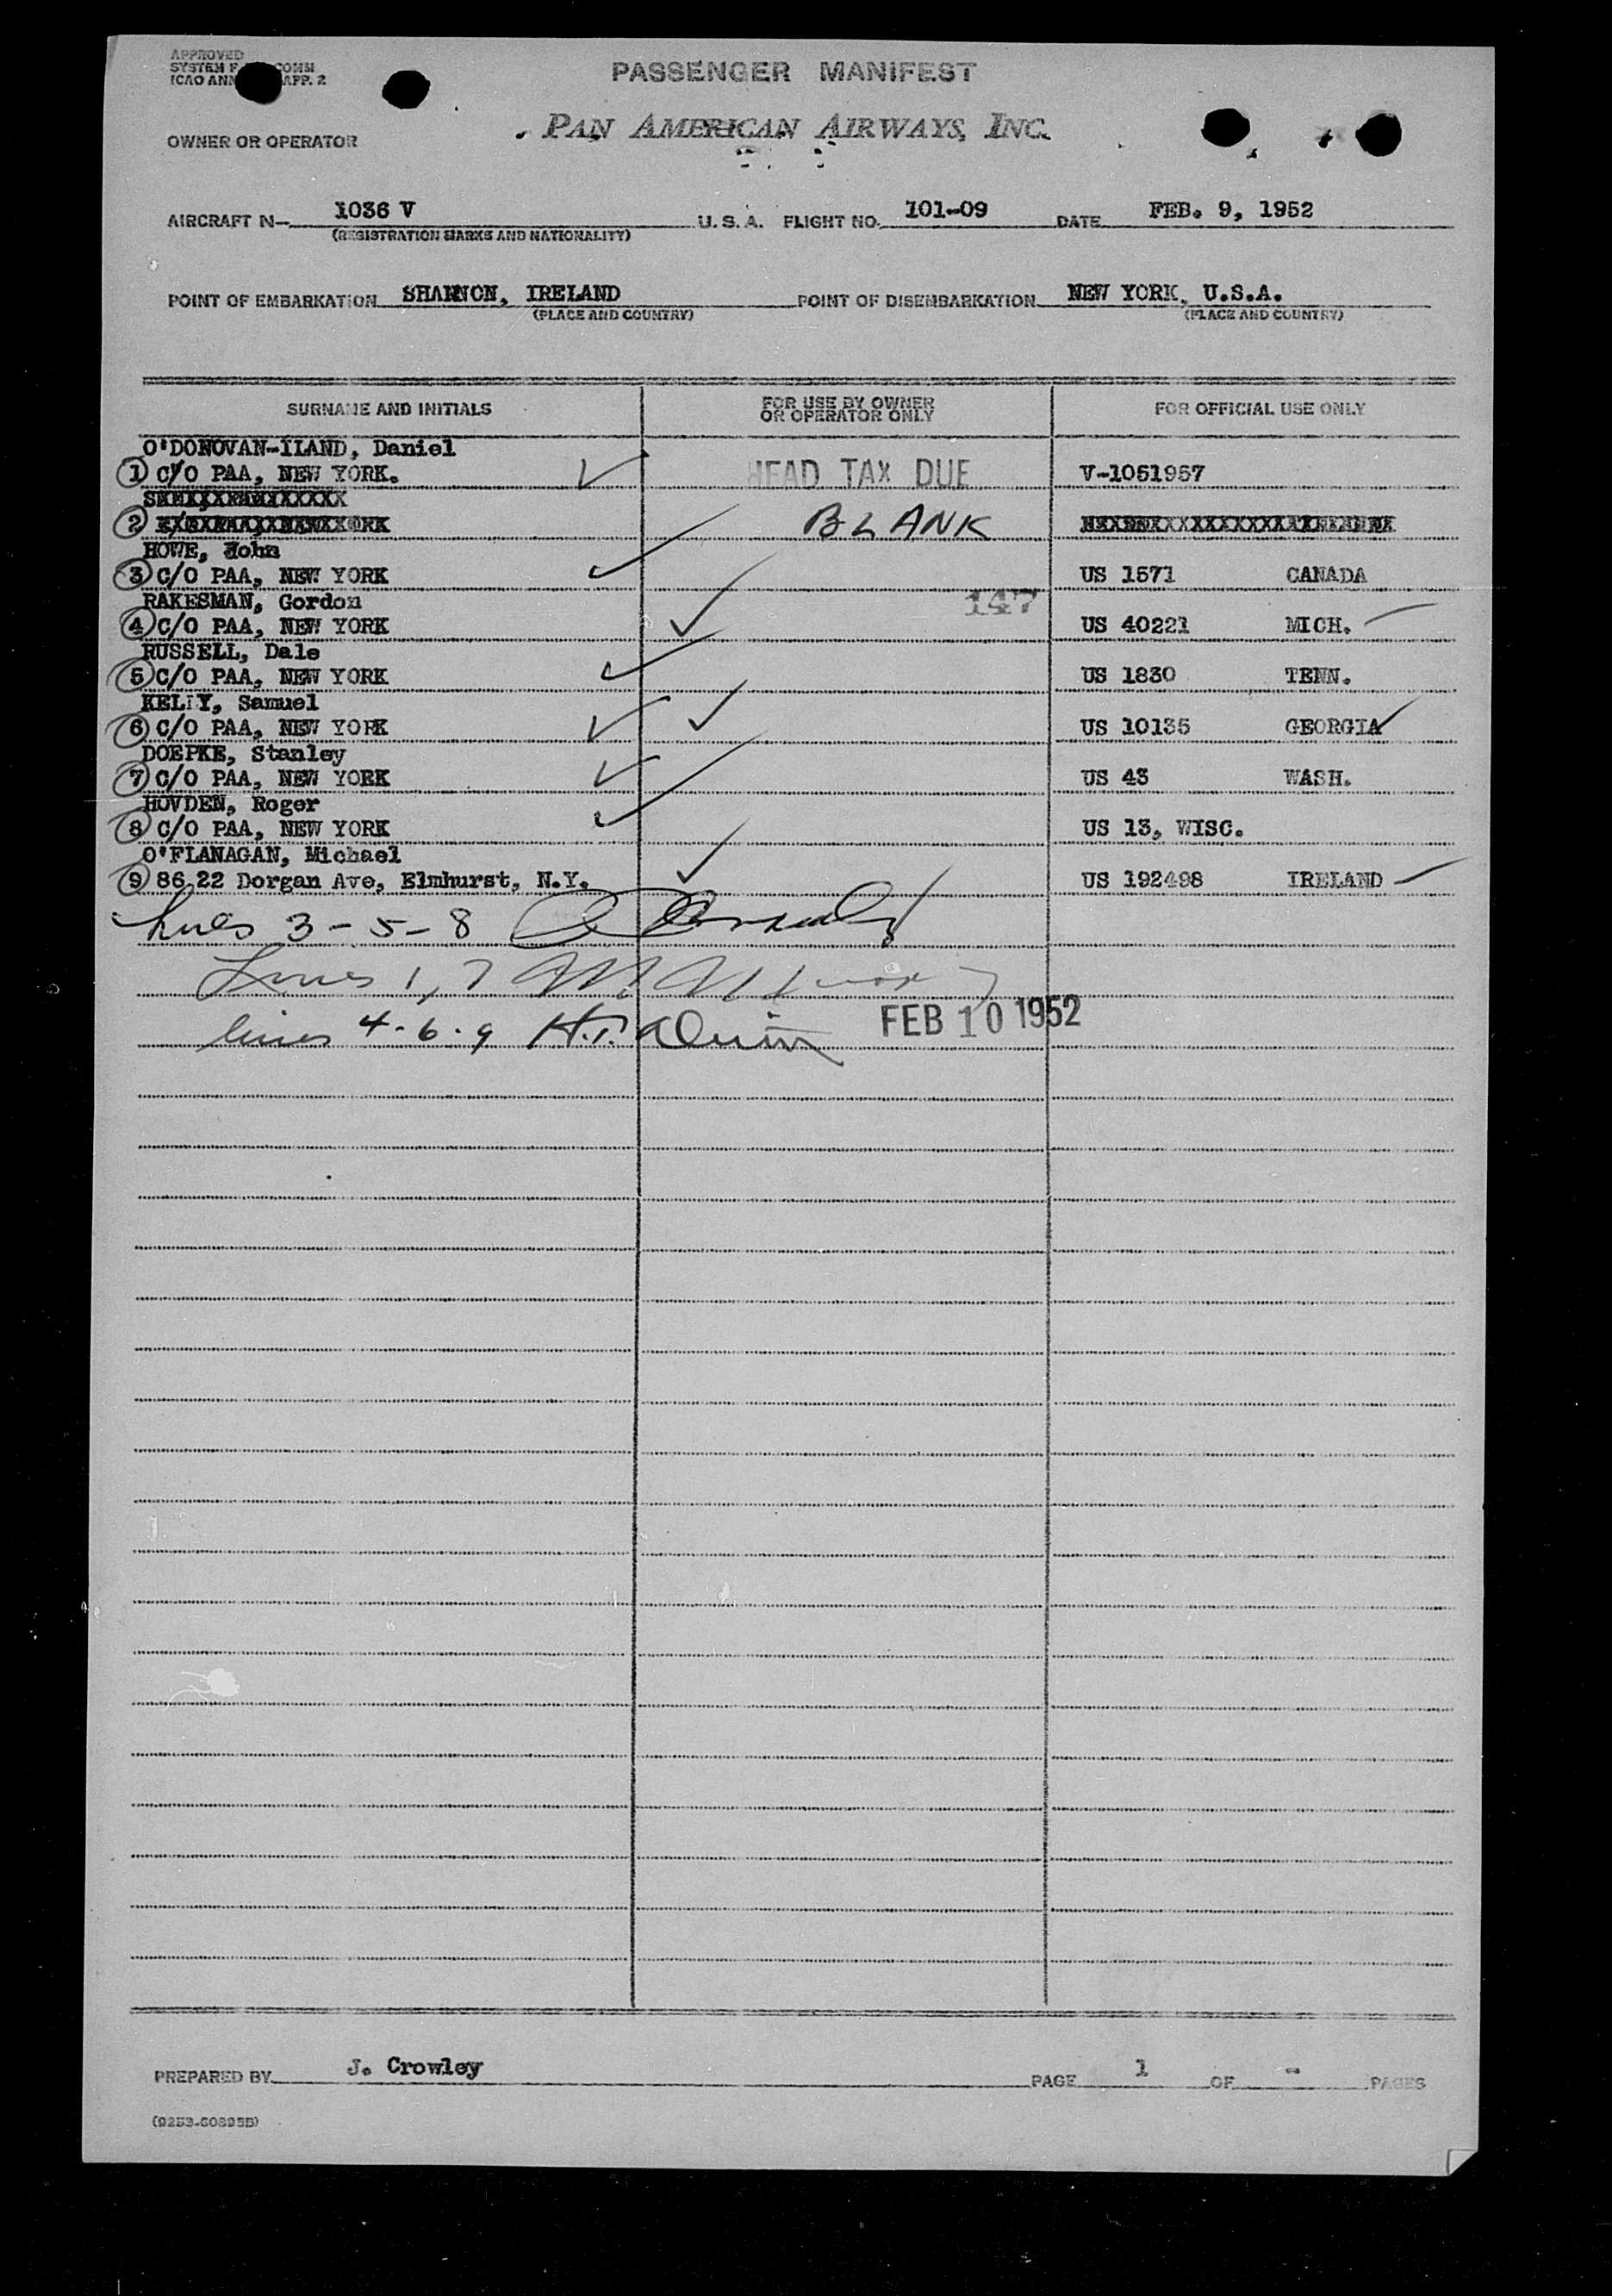 APPROVED
SYSTEM F COMM
ICAO ANN APP. 2
PASSENGER MANIFEST
OWNER OR OPERATOR
PAN AMERICAN AIRWAYS, INC.
AIRCRAFT N- 1036 V U.S.A. FLIGHT NO. 101-09 DATE FEB. 9, 1952
(REGISTRATION MARKS AND NATIONALITY)
POINT OF EMBARKATION SHANNON, IRELAND POINT OF DISEMBARKATION NEW YORK, U.S.A.
(PLACE AND COUNTRY) (PLACE AND COUNTRY)
SURNAME AND INITIALS FOR USE BY OWNER OR OPERATOR ONLY FOR OFFICIAL USE ONLY
O'DONOVAN-ILAND, Daniel
1 C/O PAA, NEW YORK. HEAD TAX DUE V-1051957
2 BLANK
HOWE, John
3 C/O PAA, NEW YORK US 1571 CANADA
RAKESMAN, Gordon 147
4 C/O PAA, NEW YORK US 40221 MICH.
RUSSELL, Dale
5 C/O PAA, NEW YORK US 1830 TENN.
KELLY, Samuel
6 C/O PAA, NEW YORK US 10135 GEORGIA
DOEPKE, Stanley
7 C/O PAA, NEW YORK US 43 WASH.
HOVDEN, Roger
8 C/O PAA, NEW YORK US 13, WISC.
O'FLANAGAN, Michael
9 86,22 Dorgan Ave, Elmhurst, N.Y. US 192498 IRELAND
Lines 3-5-8
Lines 1, 7
lines 4-6-9 H.T. FEB 10 1952
PREPARED BY J. Crowley PAGE 1 OF - PAGES
(9253-60895B)